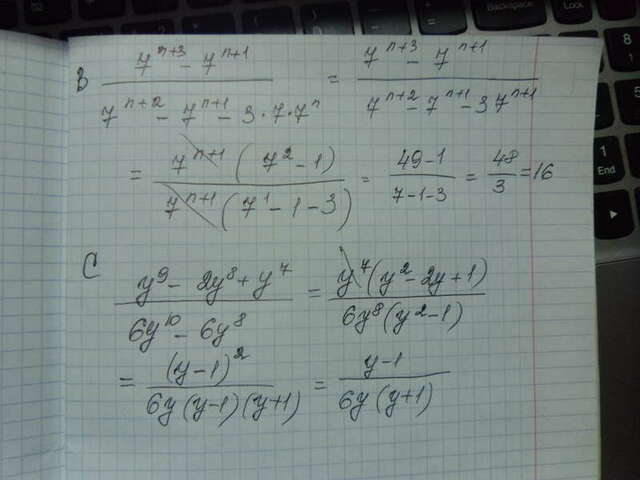 B (7^{n+3} - 7^{n+1}) / (7^{n+2} - 7^{n+1} - 3·7·7^n) = (7^{n+3} - 7^{n+1}) / (7^{n+2} - 7^{n+1} - 3 7^{n+1})
= 7^{n+1}(7^2 - 1) / 7^{n+1}(7^1 - 1 - 3) = (49-1) / (7-1-3) = 48/3 = 16
C (y^9 - 2y^8 + y^7) / (6y^{10} - 6y^8) = y^7(y^2 - 2y + 1) / 6y^8(y^2 - 1)
= (y-1)^2 / 6y(y-1)(y+1) = (y-1) / 6y(y+1)
Backspace
1
End